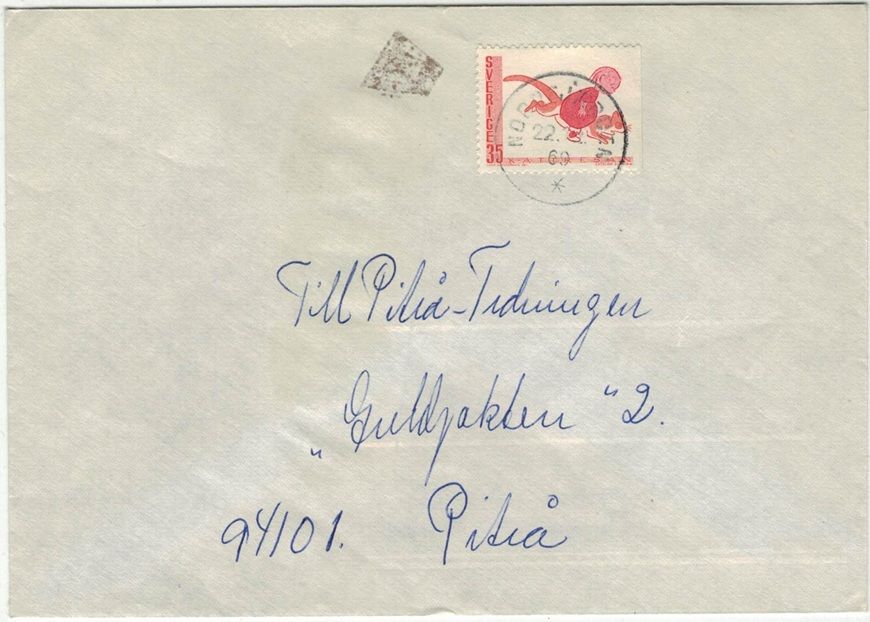 SVERIGE 35
22.
69
Till Piteå-Tidningen
"Guldjakten" 2.
94101. Piteå